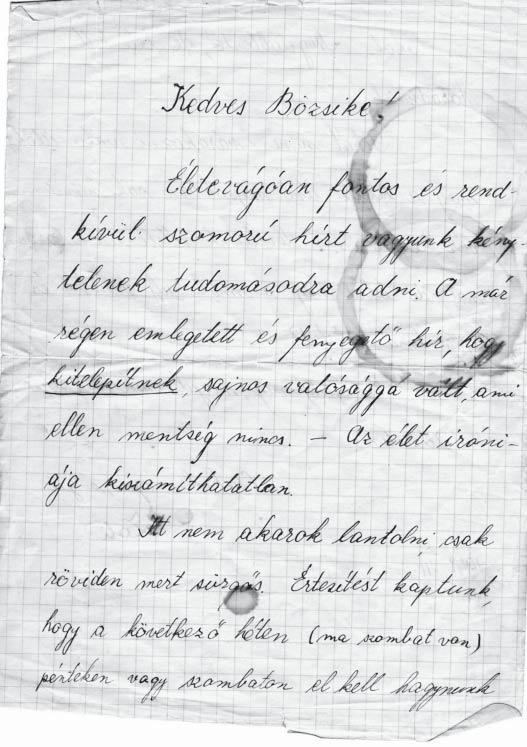 Kedves Bözsike!
Életevágóan fontos és rend-
kívül szomorú hírt vagyunk kény-
telenek tudomásodra adni. A már
régen emlegetett és fenyegető hír, hogy
kitelepítnek, sajnos valósággá vált, ami
ellen mentség nincs. — Az élet iróni-
ája kiszámíthatatlan.
Itt nem akarok lantolni, csak
röviden mert sürgős. Értesítést kaptunk,
hogy a következő héten (ma szombat van)
pénteken vagy szombaton el kell hagynunk